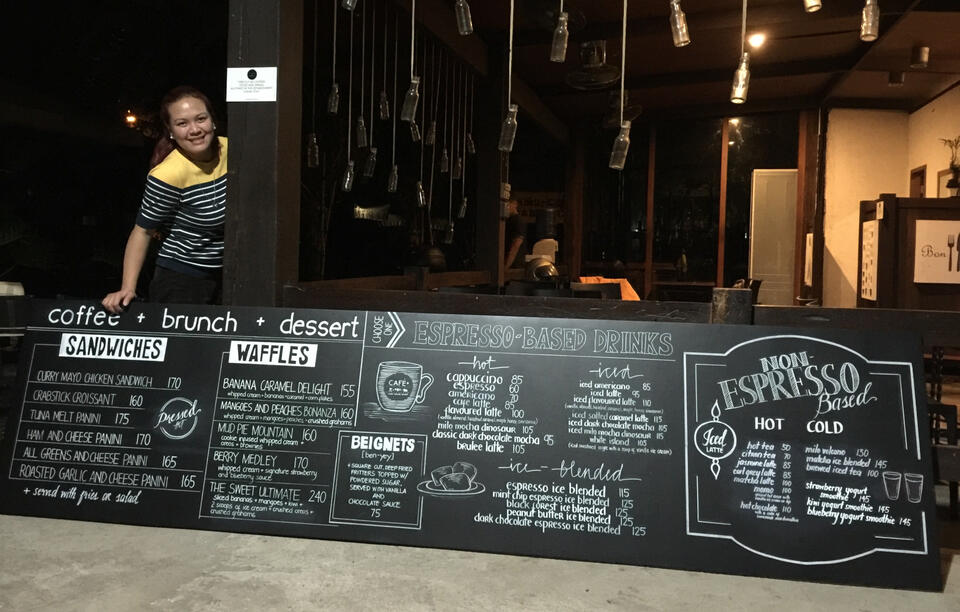 coffee + brunch + dessert
SANDWICHES
CURRY MAYO CHICKEN SANDWICH 170
CRABSTICK CROISSANT 160
TUNA MELT PANINI 175
HAM AND CHEESE PANINI 170
ALL GREENS AND CHEESE PANINI 165
ROASTED GARLIC AND CHEESE PANINI 165
+ served with fries or salad
WAFFLES
BANANA CARAMEL DELIGHT 155
whipped cream + bananas + caramel + corn flakes
MANGOES AND PEACHES BONANZA 160
MUD PIE MOUNTAIN 160
cookie infused whipped cream +
oreos + brownies
BERRY MEDLEY 170
whipped cream + signature strawberry
and blueberry sauce
THE SWEET ULTIMATE 240
sliced bananas + mangoes + kiwi +
2 scoops of ice cream + crushed oreos +
crushed grahams
CHOOSE ONE
ESPRESSO-BASED DRINKS
CAFÉ
BEIGNETS
[ben-yey]
+ SQUARE CUT, DEEP FRIED
FRITTERS TOPPED W/
POWDERED SUGAR,
SERVED WITH VANILLA
AND
CHOCOLATE SAUCE
75
hot
cappuccino 85
espresso 60
americano 75
café latte 85
flavoured latte 100
milo mocha dinosaur 105
classic dark chocolate mocha 95
brulee latte 105
iced
iced americano 85
iced latte 95
iced flavoured latte 110
iced salted caramel latte 115
iced dark chocolate mocha 115
iced milo mocha dinosaur 115
white island 105
ice-blended
espresso ice blended 115
mint chip espresso ice blended 125
black forest ice blended 125
peanut butter ice blended 125
dark chocolate espresso ice blended 125
NON-
ESPRESSO
Based
HOT COLD
Iced
LATTE
hot tea 50
citron tea
jasmine latte 85
earl grey latte 85
matcha latte
hot chocolate 110
milo volcano 130
matcha ice blended 145
brewed iced tea 100
strawberry yogurt
smoothie 145
kiwi yogurt smoothie 145
blueberry yogurt smoothie 145
Bon